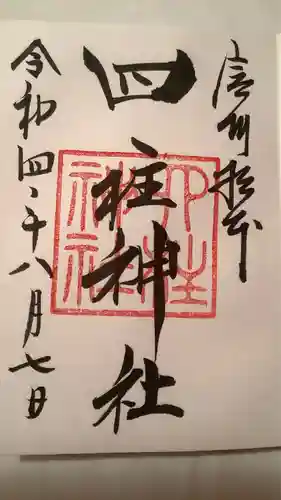 信州松本
四柱神社
令和四年八月七日
四柱
神社